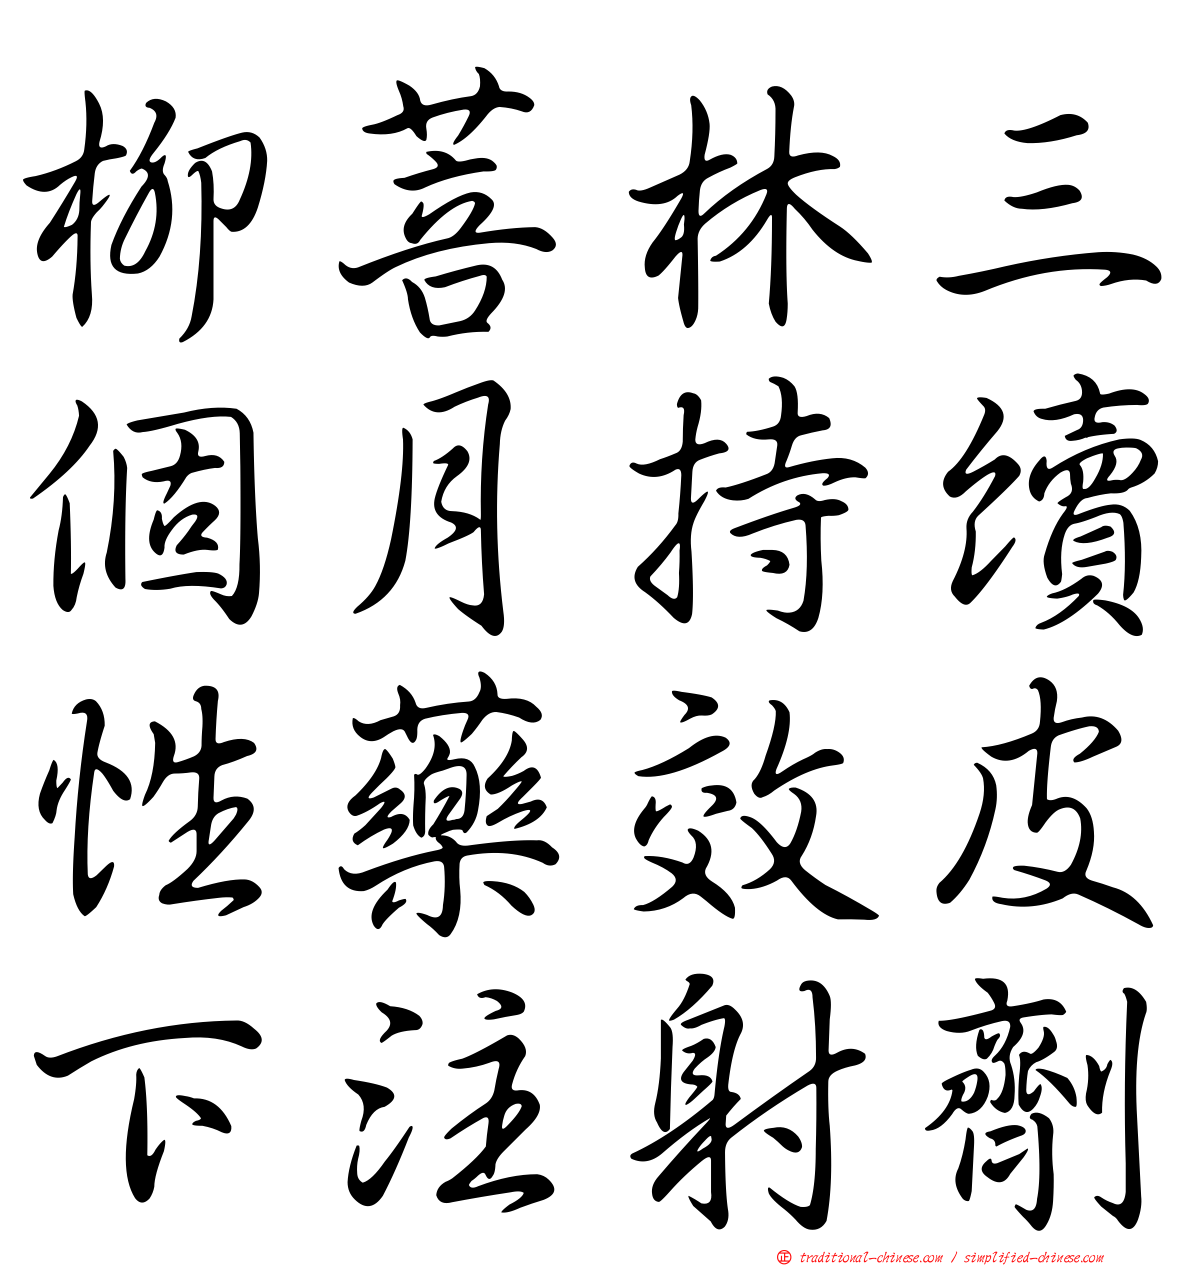 柳菩林三
個月持續
性藥效皮
下注射劑
正 traditional-chinese.com / simplified-chinese.com